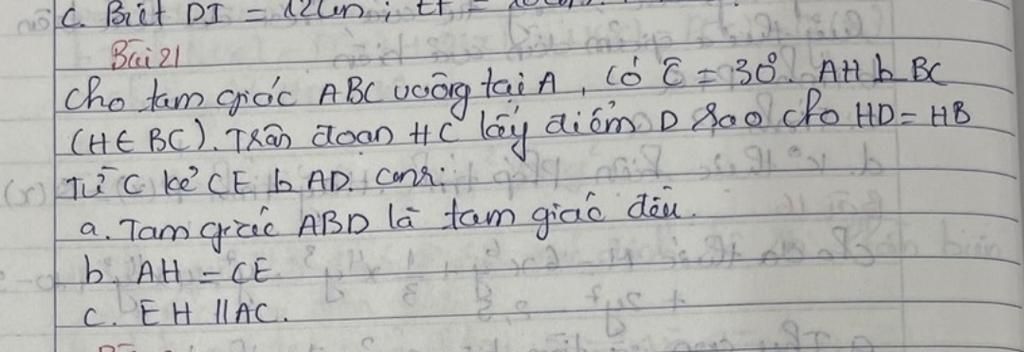 C. Biết DI = 12cm ; EF =
Bài 21
Cho tam giác ABC vuông tại A, có Ĉ = 30°. AH ⊥ BC
(H ∈ BC). Trên đoạn HC lấy điểm D sao cho HD = HB
Từ C kẻ CE ⊥ AD. Cmr:
a. Tam giác ABD là tam giác đều.
b. AH = CE
c. EH // AC.